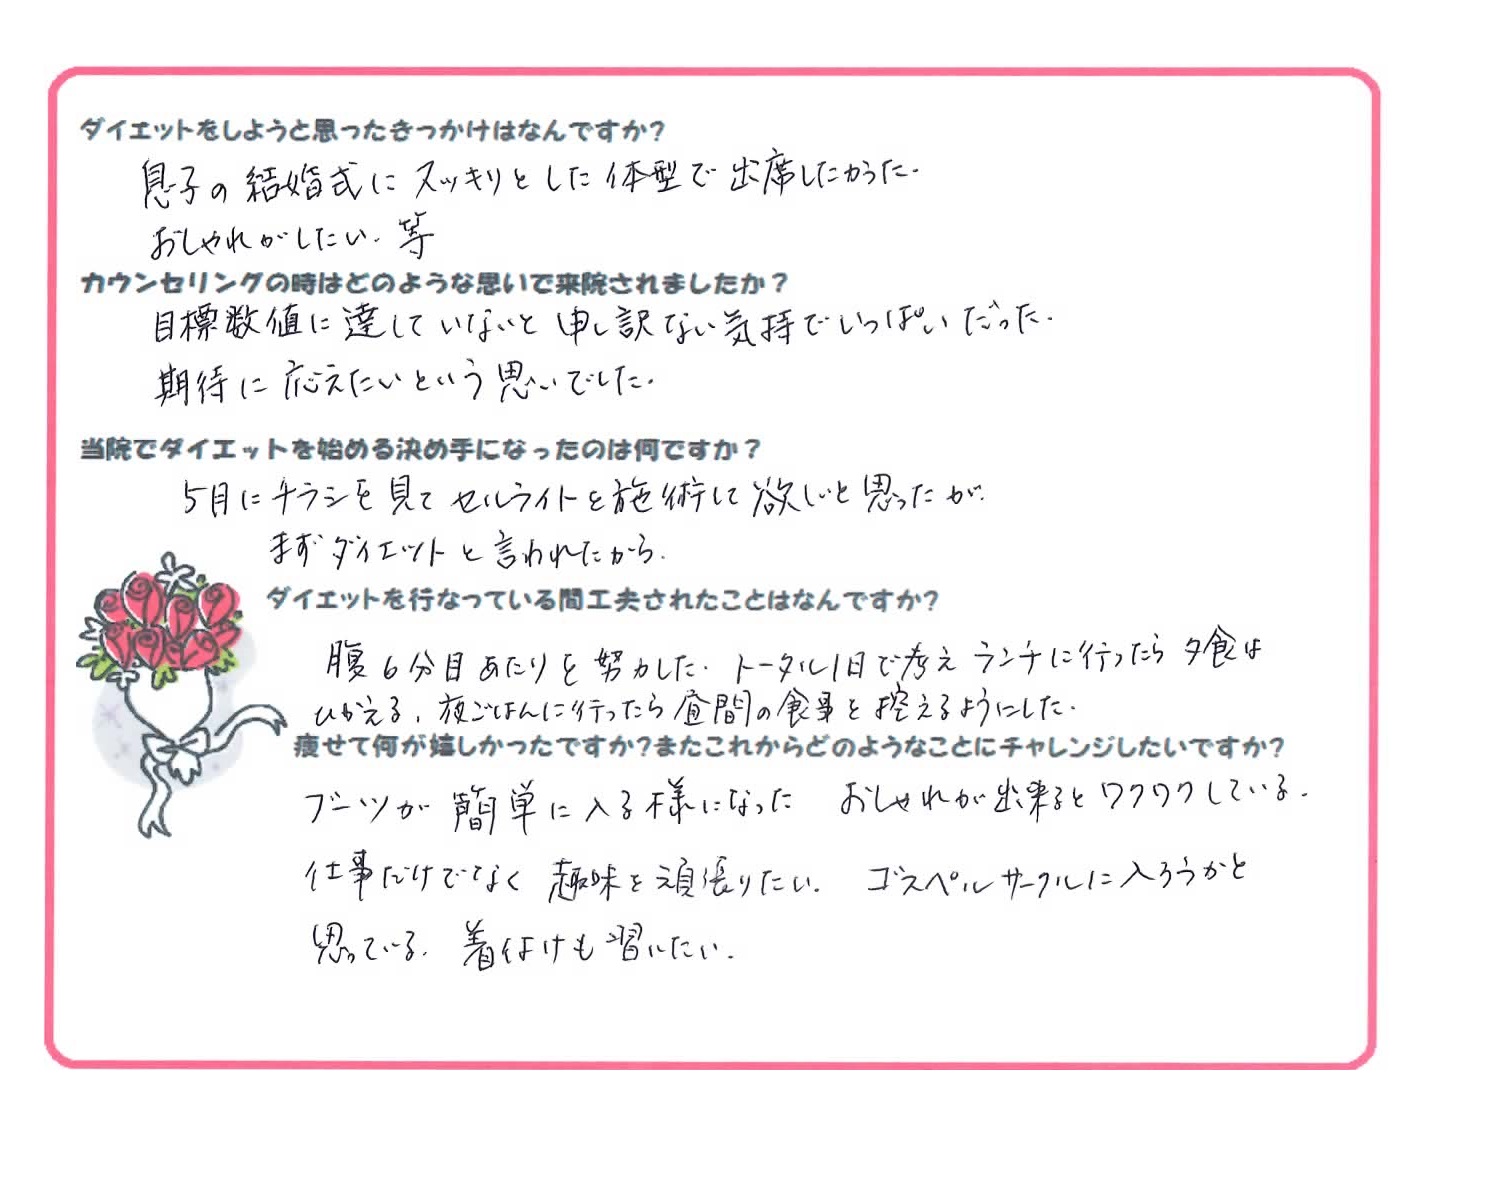 ダイエットをしようと思ったきっかけはなんですか?
息子の結婚式にスッキリとした体型で出席したかった.
おしゃれがしたい. 等
カウンセリングの時はどのような思いで来院されましたか?
目標数値に達していないと申し訳ない気持でいっぱいだった.
期待に応えたいという思いでした.
当院でダイエットを始める決め手になったのは何ですか?
5月にチラシを見てセルライトを施術して欲しいと思ったが.
まずダイエットと言われたから.
ダイエットを行なっている間工夫されたことはなんですか?
腹6分目あたりを努力した. トータル1日で考えランチに行ったら夕食は
ひかえる, 夜ごはんに行ったら昼間の食事を控えるようにした.
痩せて何が嬉しかったですか?またこれからどのようなことにチャレンジしたいですか?
ブーツが簡単に入る様になった おしゃれが出来るとワクワクしている.
仕事だけでなく趣味を頑張りたい. ゴスペルサークルに入ろうかと
思っている. 着付けも習いたい.